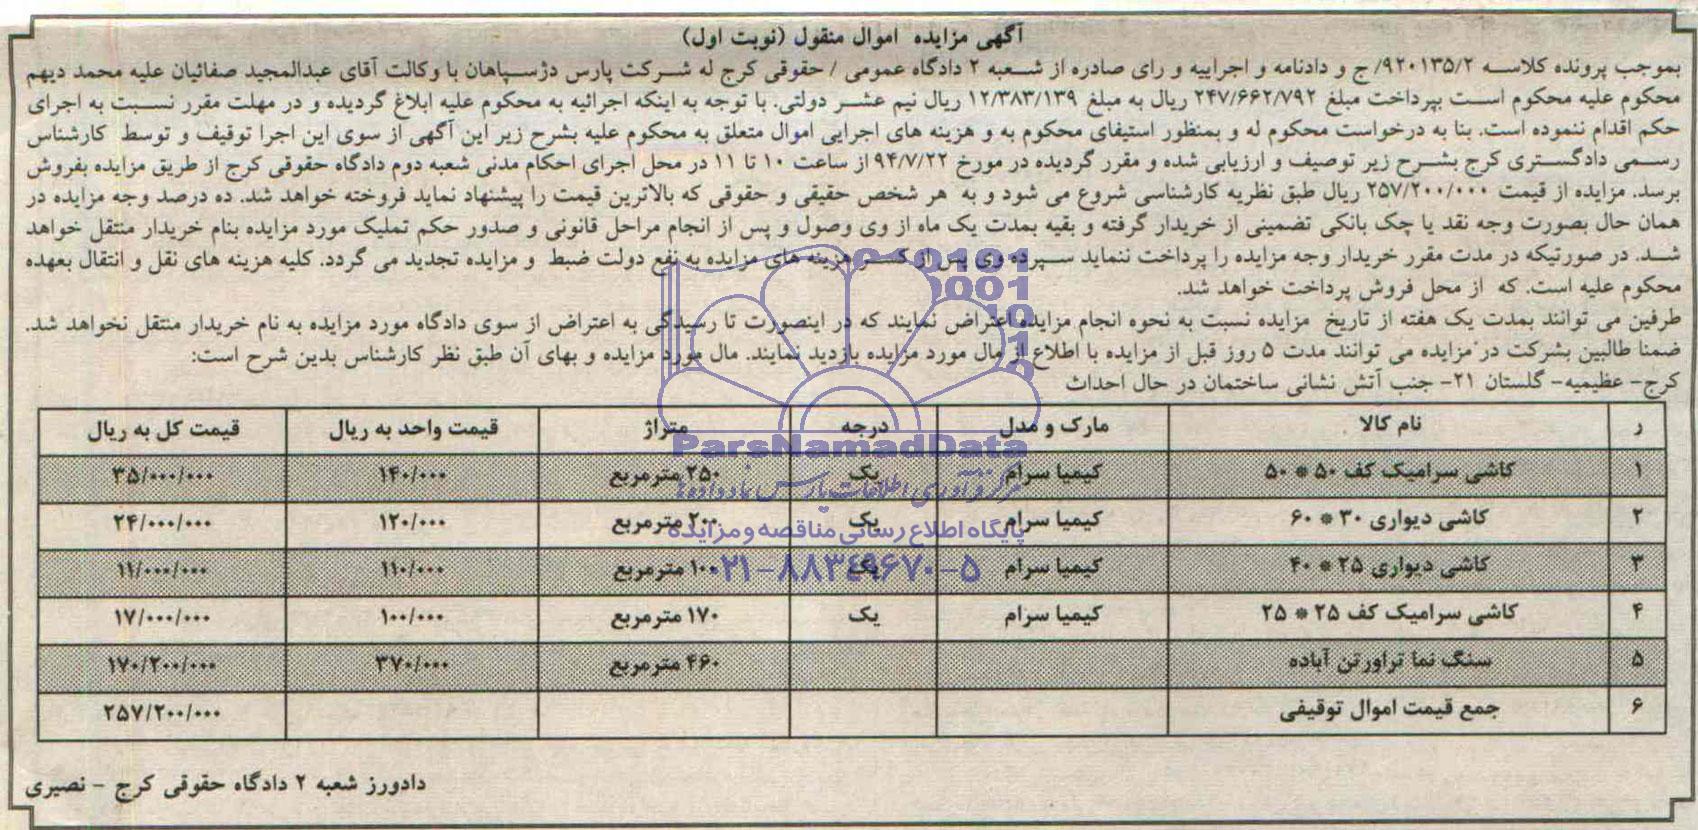 آگهی مزایده اموال منقول (نوبت اول)
بموجب پرونده کلاسه ۹۲۰۱۳۵/۲/ ج و دادنامه و اجراییه و رای صادره از شعبه ۲ دادگاه عمومی / حقوقی کرج له شرکت پارس دژسپاهان با وکالت آقای عبدالمجید صفائیان علیه محمد دیهم
محکوم علیه محکوم است بپرداخت مبلغ ۲۴۷/۶۶۲/۷۹۲ ریال به مبلغ ۱۲/۳۸۳/۱۳۹ ریال نیم عشر دولتی. با توجه به اینکه اجرائیه به محکوم علیه ابلاغ گردیده و در مهلت مقرر نسبت به اجرای
حکم اقدام ننموده است. بنا به درخواست محکوم له و بمنظور استیفای محکوم به و هزینه های اجرایی اموال متعلق به محکوم علیه بشرح زیر این آگهی از سوی این اجرا توقیف و توسط کارشناس
رسمی دادگستری کرج بشرح زیر توصیف و ارزیابی شده و مقرر گردیده در مورخ ۹۴/۷/۲۲ از ساعت ۱۰ تا ۱۱ در محل اجرای احکام مدنی شعبه دوم دادگاه حقوقی کرج از طریق مزایده بفروش
برسد. مزایده از قیمت ۲۵۷/۲۰۰/۰۰۰ ریال طبق نظریه کارشناسی شروع می شود و به هر شخص حقیقی و حقوقی که بالاترین قیمت را پیشنهاد نماید فروخته خواهد شد. ده درصد وجه مزایده در
همان حال بصورت وجه نقد یا چک بانکی تضمینی از خریدار گرفته و بقیه بمدت یک ماه از وی وصول و پس از انجام مراحل قانونی و صدور حکم تملیک مورد مزایده بنام خریدار منتقل خواهد
شد. در صورتیکه در مدت مقرر خریدار وجه مزایده را پرداخت ننماید سپرده وی پس از کسر هزینه های مزایده به نفع دولت ضبط و مزایده تجدید می گردد. کلیه هزینه های نقل و انتقال بعهده
محکوم علیه است. که از محل فروش پرداخت خواهد شد.
طرفین می توانند بمدت یک هفته از تاریخ مزایده نسبت به نحوه انجام مزایده اعتراض نمایند که در اینصورت تا رسیدگی به اعتراض از سوی دادگاه مورد مزایده به نام خریدار منتقل نخواهد شد.
ضمنا طالبین بشرکت در مزایده می توانند مدت ۵ روز قبل از مزایده با اطلاع از مال مورد مزایده بازدید نمایند. مال مورد مزایده و بهای آن طبق نظر کارشناس بدین شرح است:
کرج- عظیمیه- گلستان ۲۱- جنب آتش نشانی ساختمان در حال احداث
ر نام کالا مارک و مدل درجه متراژ قیمت واحد به ریال قیمت کل به ریال
۱ کاشی سرامیک کف ۵۰ * ۵۰ کیمیا سرام یک ۲۵۰ مترمربع ۱۴۰/۰۰۰ ۳۵/۰۰۰/۰۰۰
۲ کاشی دیواری ۳۰ * ۶۰ کیمیا سرام یک ۲۰۰ مترمربع ۱۲۰/۰۰۰ ۲۴/۰۰۰/۰۰۰
۳ کاشی دیواری ۲۵ * ۴۰ کیمیا سرام یک ۱۰۰ مترمربع ۱۱۰/۰۰۰ ۱۱/۰۰۰/۰۰۰
۴ کاشی سرامیک کف ۲۵ * ۲۵ کیمیا سرام یک ۱۷۰ مترمربع ۱۰۰/۰۰۰ ۱۷/۰۰۰/۰۰۰
۵ سنگ نما تراورتن آباده ۴۶۰ مترمربع ۳۷۰/۰۰۰ ۱۷۰/۲۰۰/۰۰۰
۶ جمع قیمت اموال توقیفی ۲۵۷/۲۰۰/۰۰۰
دادورز شعبه ۲ دادگاه حقوقی کرج - نصیری
ParsNamadData
مرکز فرآوری اطلاعات پارس نماد داده ها
پایگاه اطلاع رسانی مناقصه و مزایده
۰۲۱-۸۸۳۴۹۶۷۰-۵